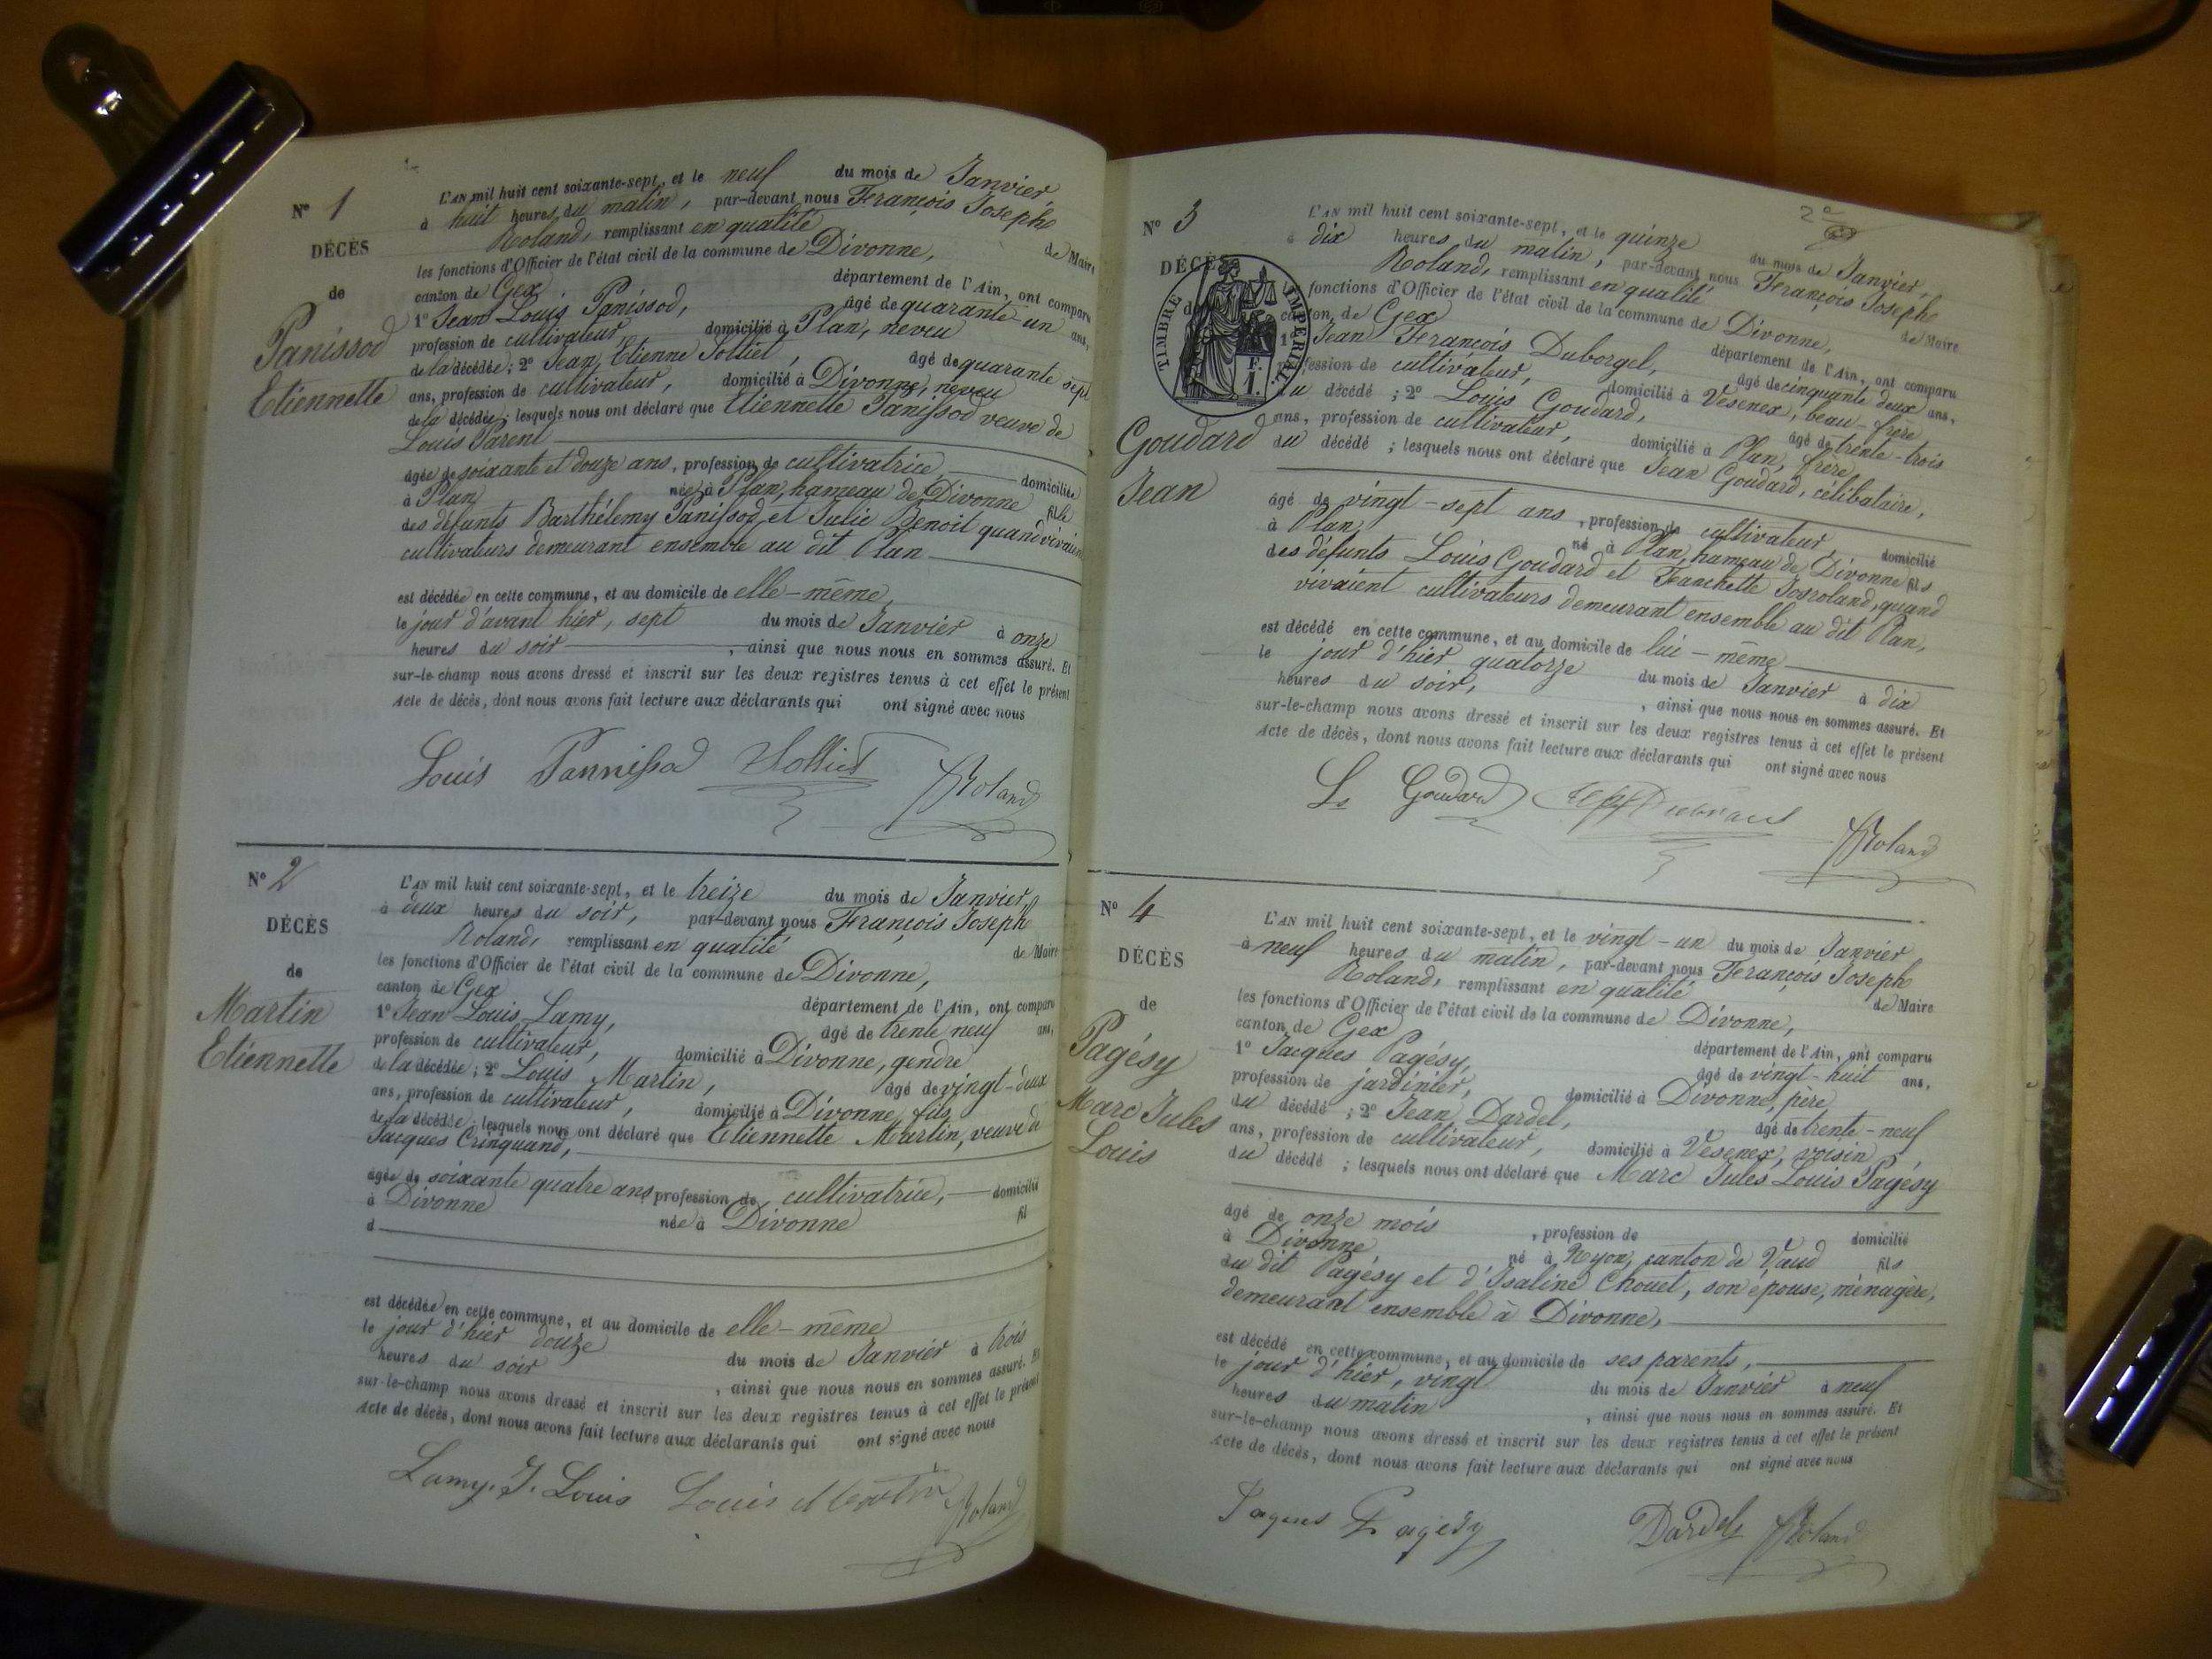 N° 1
DÉCÈS
de
Panissod
Etiennette
L'AN mil huit cent soixante-sept, et le neuf du mois de Janvier,
à huit heures du matin, par-devant nous François Joseph
Roland, remplissant en qualité de Maire
les fonctions d'Officier de l'état civil de la commune de Divonne,
canton de Gex département de l'Ain, ont comparu
1° Jean Louis Panissod, âgé de quarante-un ans,
profession de cultivateur, domicilié à Plan, neveu
de la décédée; 2° Jean Etienne Solliet, âgé de quarante sept
ans, profession de cultivateur, domicilié à Divonne, neveu
de la décédée; lesquels nous ont déclaré que Etiennette Panissod veuve de
Louis Parent
âgée de soixante et douze ans, profession de cultivatrice domiciliée
à Plan née à Plan, hameau de Divonne fille
des défunts Barthélemy Panissod et Julie Benoit quand vivaient
cultivateurs demeurant ensemble au dit Plan
est décédée en cette commune, et au domicile de elle-même
le jour d'avant hier, sept du mois de Janvier à onze
heures du soir, ainsi que nous nous en sommes assuré. Et
sur-le-champ nous avons dressé et inscrit sur les deux registres tenus à cet effet le présent
Acte de décès, dont nous avons fait lecture aux déclarants qui ont signé avec nous
Louis Pannissod Solliet Roland
N° 2
DÉCÈS
de
Martin
Etiennette
L'AN mil huit cent soixante-sept, et le treize du mois de Janvier,
à deux heures du soir, par-devant nous François Joseph
Roland, remplissant en qualité de Maire
les fonctions d'Officier de l'état civil de la commune de Divonne,
canton de Gex département de l'Ain, ont comparu
1° Jean Louis Lamy, âgé de trente neuf ans,
profession de cultivateur, domicilié à Divonne, gendre
de la décédée; 2° Louis Martin, âgé de vingt-deux
ans, profession de cultivateur, domicilié à Divonne, fils
de la décédée; lesquels nous ont déclaré que Etiennette Martin, veuve de
Jacques Crinquand,
âgée de soixante quatre ans profession de cultivatrice, domicilié
à Divonne née à Divonne fil
d
est décédée en cette commune, et au domicile de elle-même
le jour d'hier douze du mois de Janvier à trois
heures du soir, ainsi que nous nous en sommes assuré. Et
sur-le-champ nous avons dressé et inscrit sur les deux registres tenus à cet effet le présent
Acte de décès, dont nous avons fait lecture aux déclarants qui ont signé avec nous
Lamy, J. Louis Louis Martin Roland
2°
N° 3
DÉCÈS
de
TIMBRE IMPÉRIAL
F.
1.
Goudard
Jean
L'AN mil huit cent soixante-sept, et le quinze du mois de Janvier,
à dix heures du matin, par-devant nous François Joseph
Roland, remplissant en qualité de Maire
les fonctions d'Officier de l'état civil de la commune de Divonne,
canton, de Gex département de l'Ain, ont comparu
1° Jean François Duborgel, âgé de cinquante deux ans,
profession de cultivateur, domicilié à Vesenex, beau-frère
du décédé; 2° Louis Goudard, âgé de trente-trois
ans, profession de cultivateur, domicilié à Plan, frère
du décédé; lesquels nous ont déclaré que Jean Goudard, célibataire,
âgé de vingt-sept ans, profession de cultivateur domicilié
à Plan, né à Plan, hameau de Divonne fils
des défunts Louis Goudard et Jeanchette Josroland, quand
vivaient cultivateurs demeurant ensemble au dit Plan,
est décédé en cette commune, et au domicile de lui-même
le jour d'hier quatorze du mois de Janvier à dix
heures du soir, ainsi que nous nous en sommes assuré. Et
sur-le-champ nous avons dressé et inscrit sur les deux registres tenus à cet effet le présent
Acte de décès, dont nous avons fait lecture aux déclarants qui ont signé avec nous
Ls Goudard Roland
N° 4
DÉCÈS
de
Pagésy
Marc Jules
Louis
L'AN mil huit cent soixante-sept, et le vingt-un du mois de Janvier
à neuf heures du matin, par-devant nous François Joseph
Roland, remplissant en qualité de Maire
les fonctions d'Officier de l'état civil de la commune de Divonne,
canton de Gex département de l'Ain, ont comparu
1° Jacques Pagésy, âgé de vingt-huit ans,
profession de jardinier, domicilié à Divonne, père
du décédé; 2° Jean Dardel, âgé de trente-neuf
ans, profession de cultivateur, domicilié à Vesenex, voisin
du décédé; lesquels nous ont déclaré que Marc Jules Louis Pagésy
âgé de onze mois, profession de domicilié
à Divonne né à Nyon, canton de Vaud fils
du dit Pagésy et d'Isaline Chouet, son épouse, ménagère,
demeurant ensemble à Divonne,
est décédé en cette commune, et au domicile de ses parents,
le jour d'hier, vingt du mois de Janvier à neuf
heures du matin, ainsi que nous nous en sommes assuré. Et
sur-le-champ nous avons dressé et inscrit sur les deux registres tenus à cet effet le présent
Acte de décès, dont nous avons fait lecture aux déclarants qui ont signé avec nous
Jaques Pagésy Dardel Roland